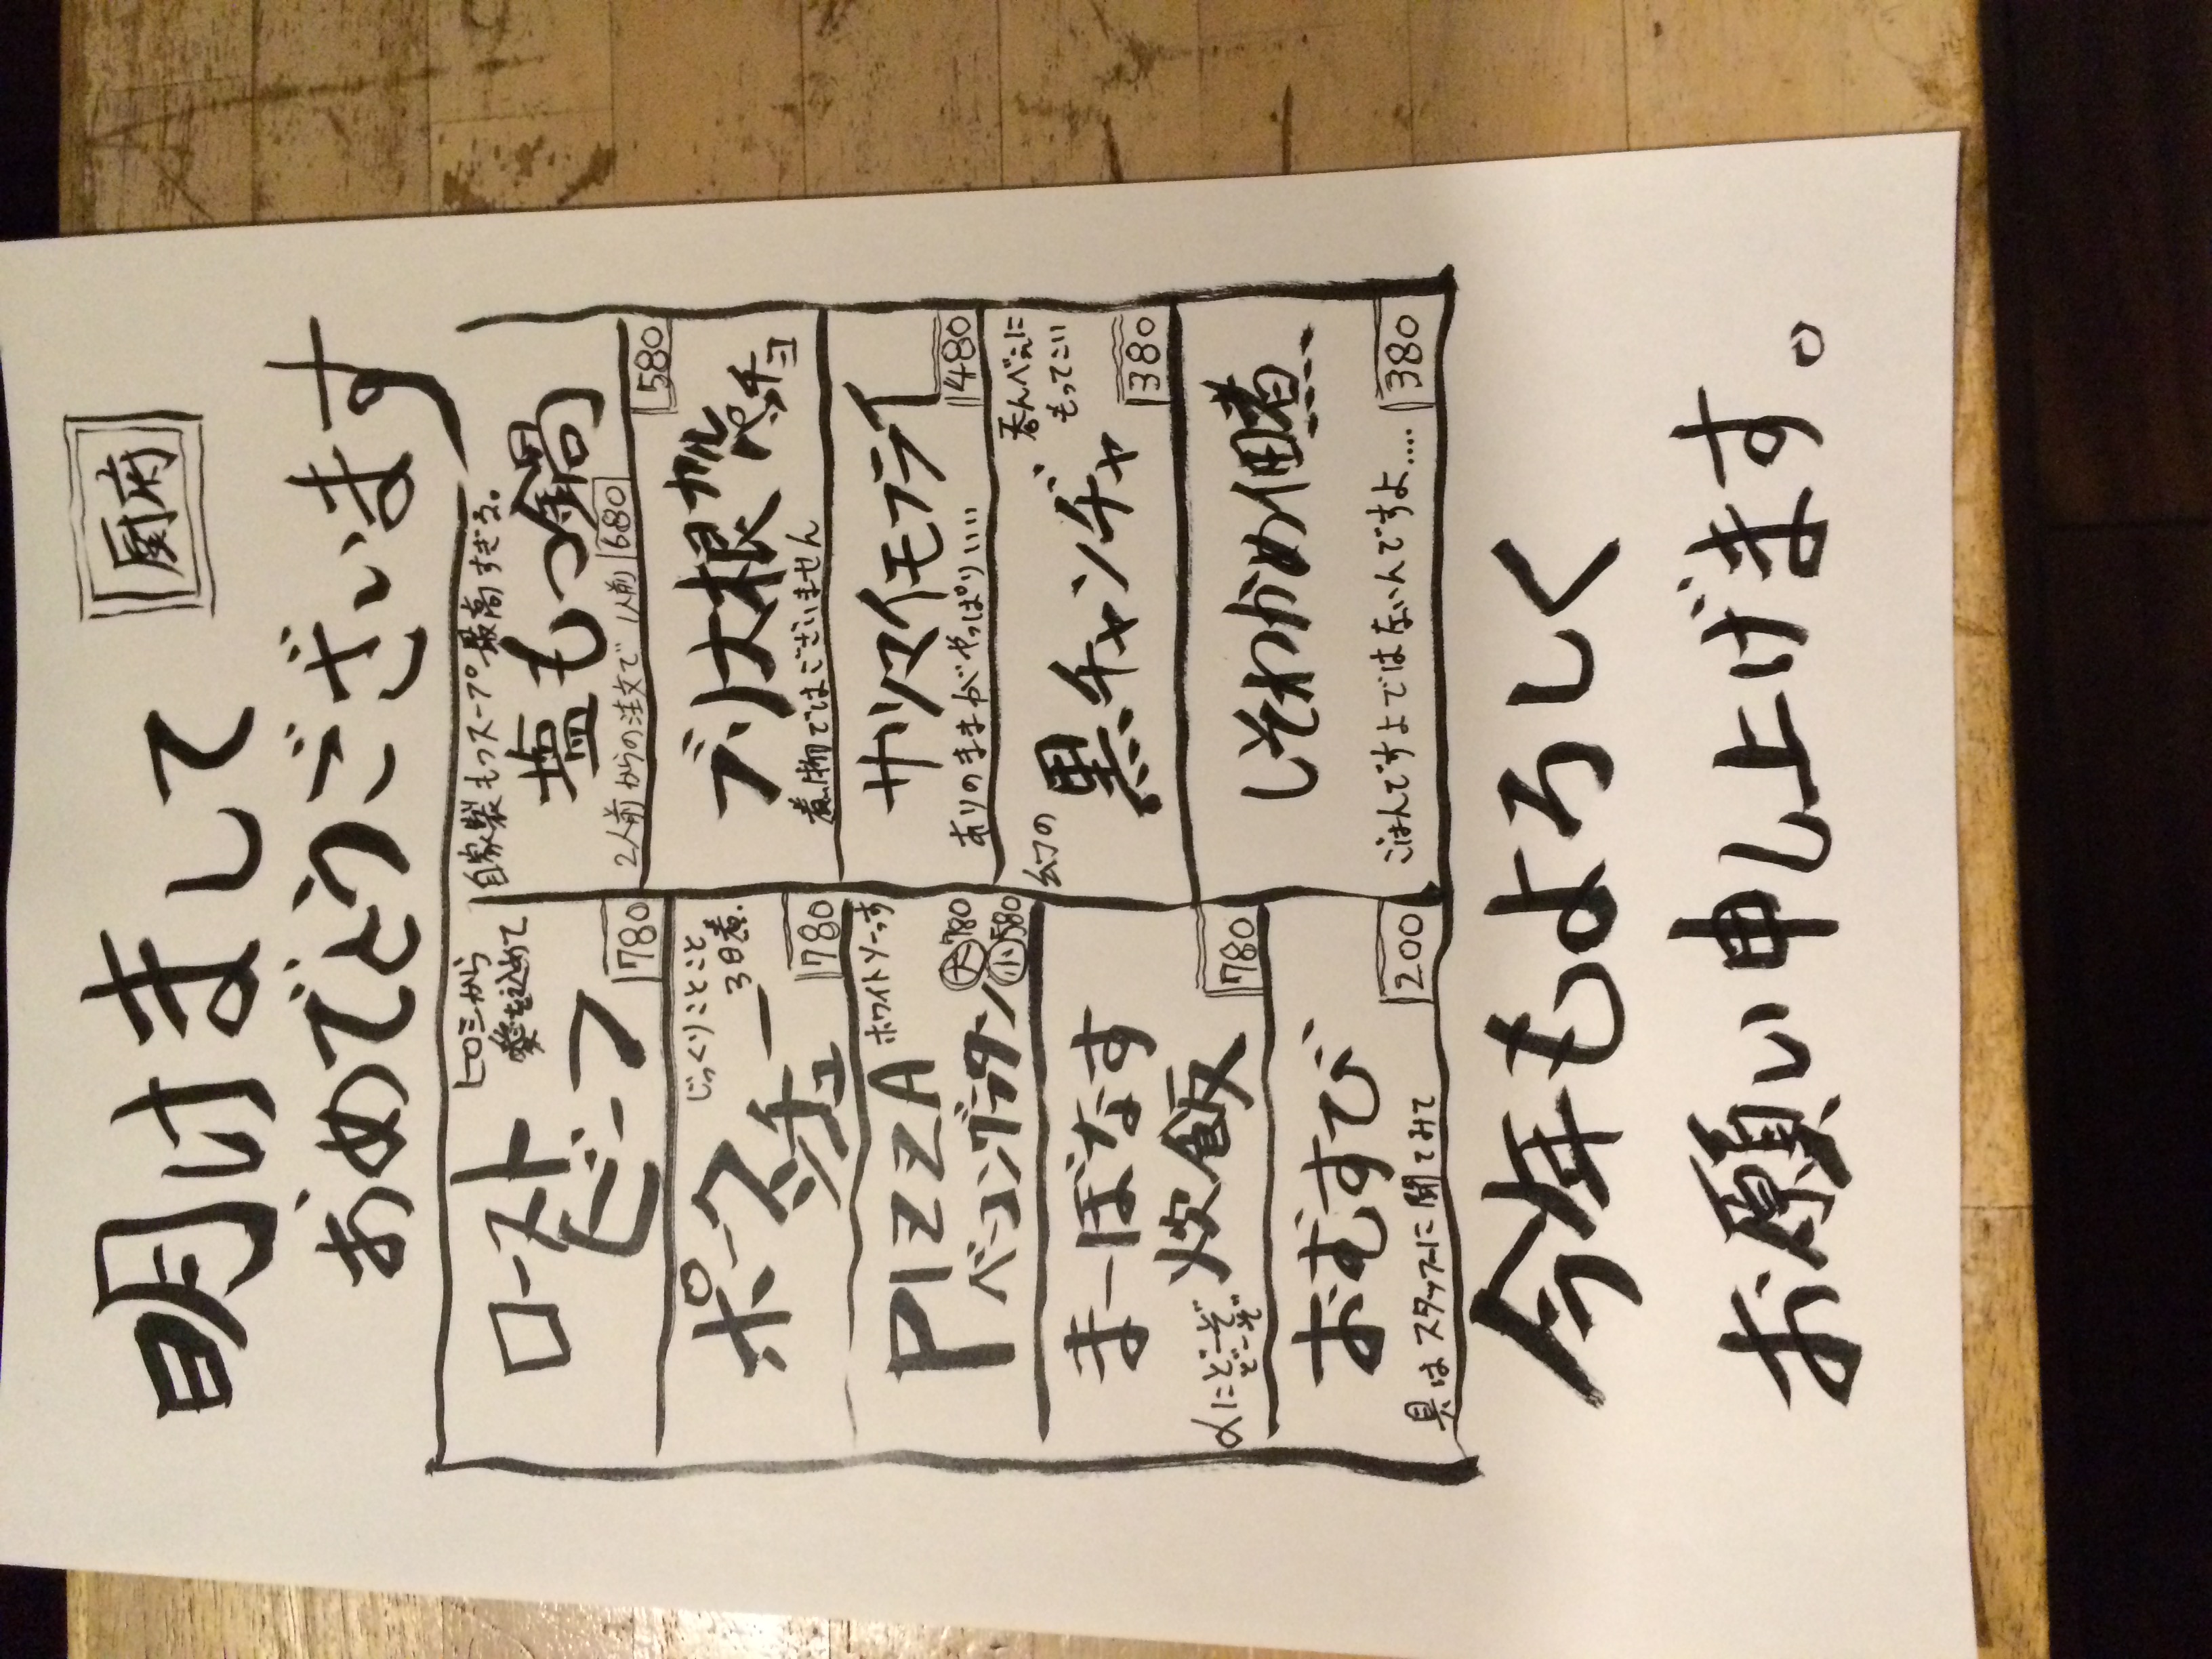 厨府
明けまして
おめでとうございます
ヒロミから
愛を込めて
ロースト
ビーフ
780
じっくりことこと
3日煮
ポークス
チュー
780
PIZZA
ホワイトソーす
ベーコングラタン
大780
小580
まーぼなす
炊飯
〆にどーぞ
どーぞ
780
おむすび
具はスタッフーに聞てみて
200
自家製もつスープ最高すぎる。
塩もつ鍋
2人前からの注文で 1人前 680
580
ブリ大根カルパッチョ
煮物ではございません
サツマイモフライ
ありのままがやっぱりいい
480
呑んべえに
もってこい
幻の
黒チャンヂャ
380
しそわかめ佃煮
ごはんですよではないんですよ....
380
今年もよろしく
お願い申し上げます。